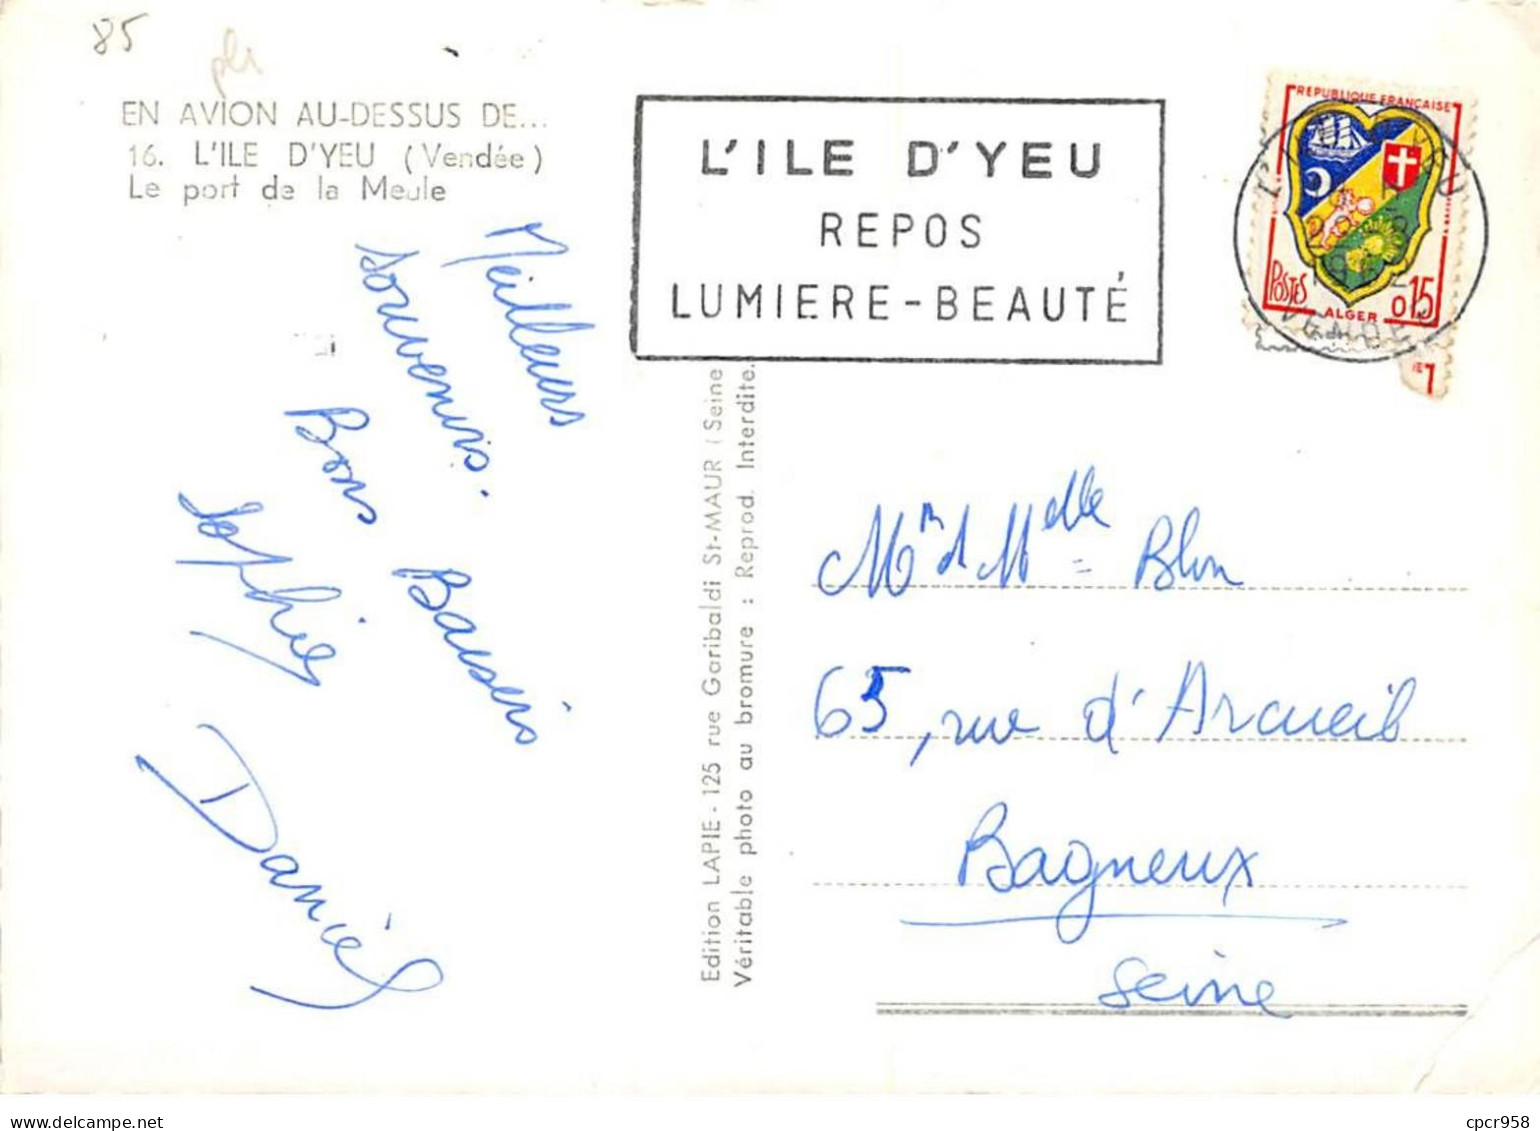 85
pli
EN AVION AU-DESSUS DE...
16. L'ILE D'YEU (Vendée)
Le port de la Meule
L'ILE D'YEU
REPOS
LUMIERE-BEAUTÉ
REPUBLIQUE FRANÇAISE
POSTES
ALGER
0,15
VENDEE
Meilleurs
souvenirs.
Bons Baisers
Sophie
Daniel
Edition LAPIE - 125 rue Garibaldi St-MAUR (Seine
Véritable photo au bromure : Reprod. Interdite.
Melle Blon
65, rue d'Arcueil
Bagneux
Seine
cpcr958